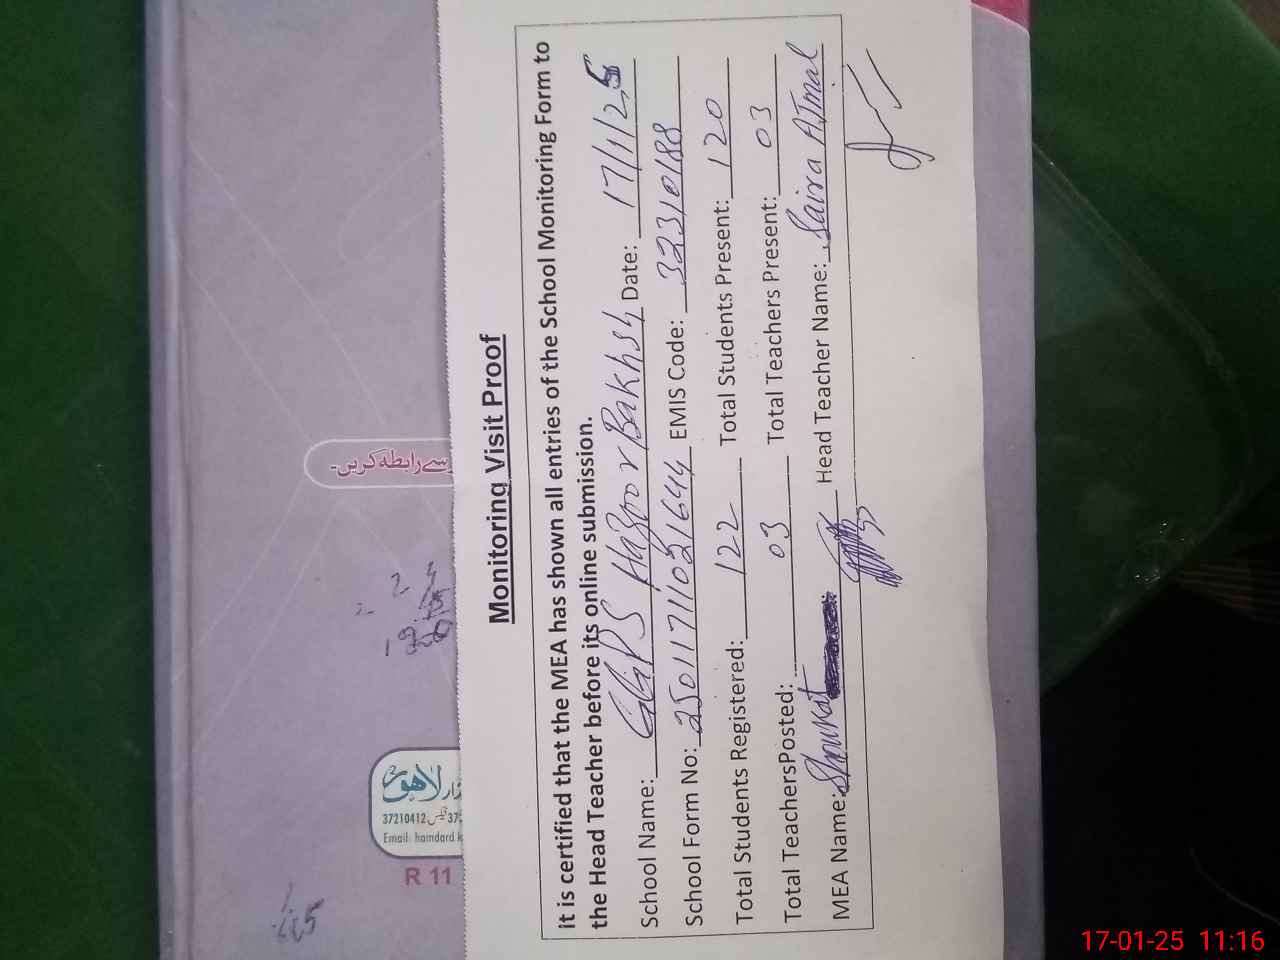 Monitoring Visit Proof
It is certified that the MEA has shown all entries of the School Monitoring Form to
the Head Teacher before its online submission.
School Name: GGPS Hazoor Bakhsh Date: 17/1/25
School Form No: 25011711021644 EMIS Code: 32310188
Total Students Registered: 122 Total Students Present: 120
Total TeachersPosted: 03 Total Teachers Present: 03
MEA Name: Shoukat Head Teacher Name: Saira AJmal
سے رابطہ کریں۔
لاہور
37210412
Email: hamdard
R 11
17-01-25 11:16